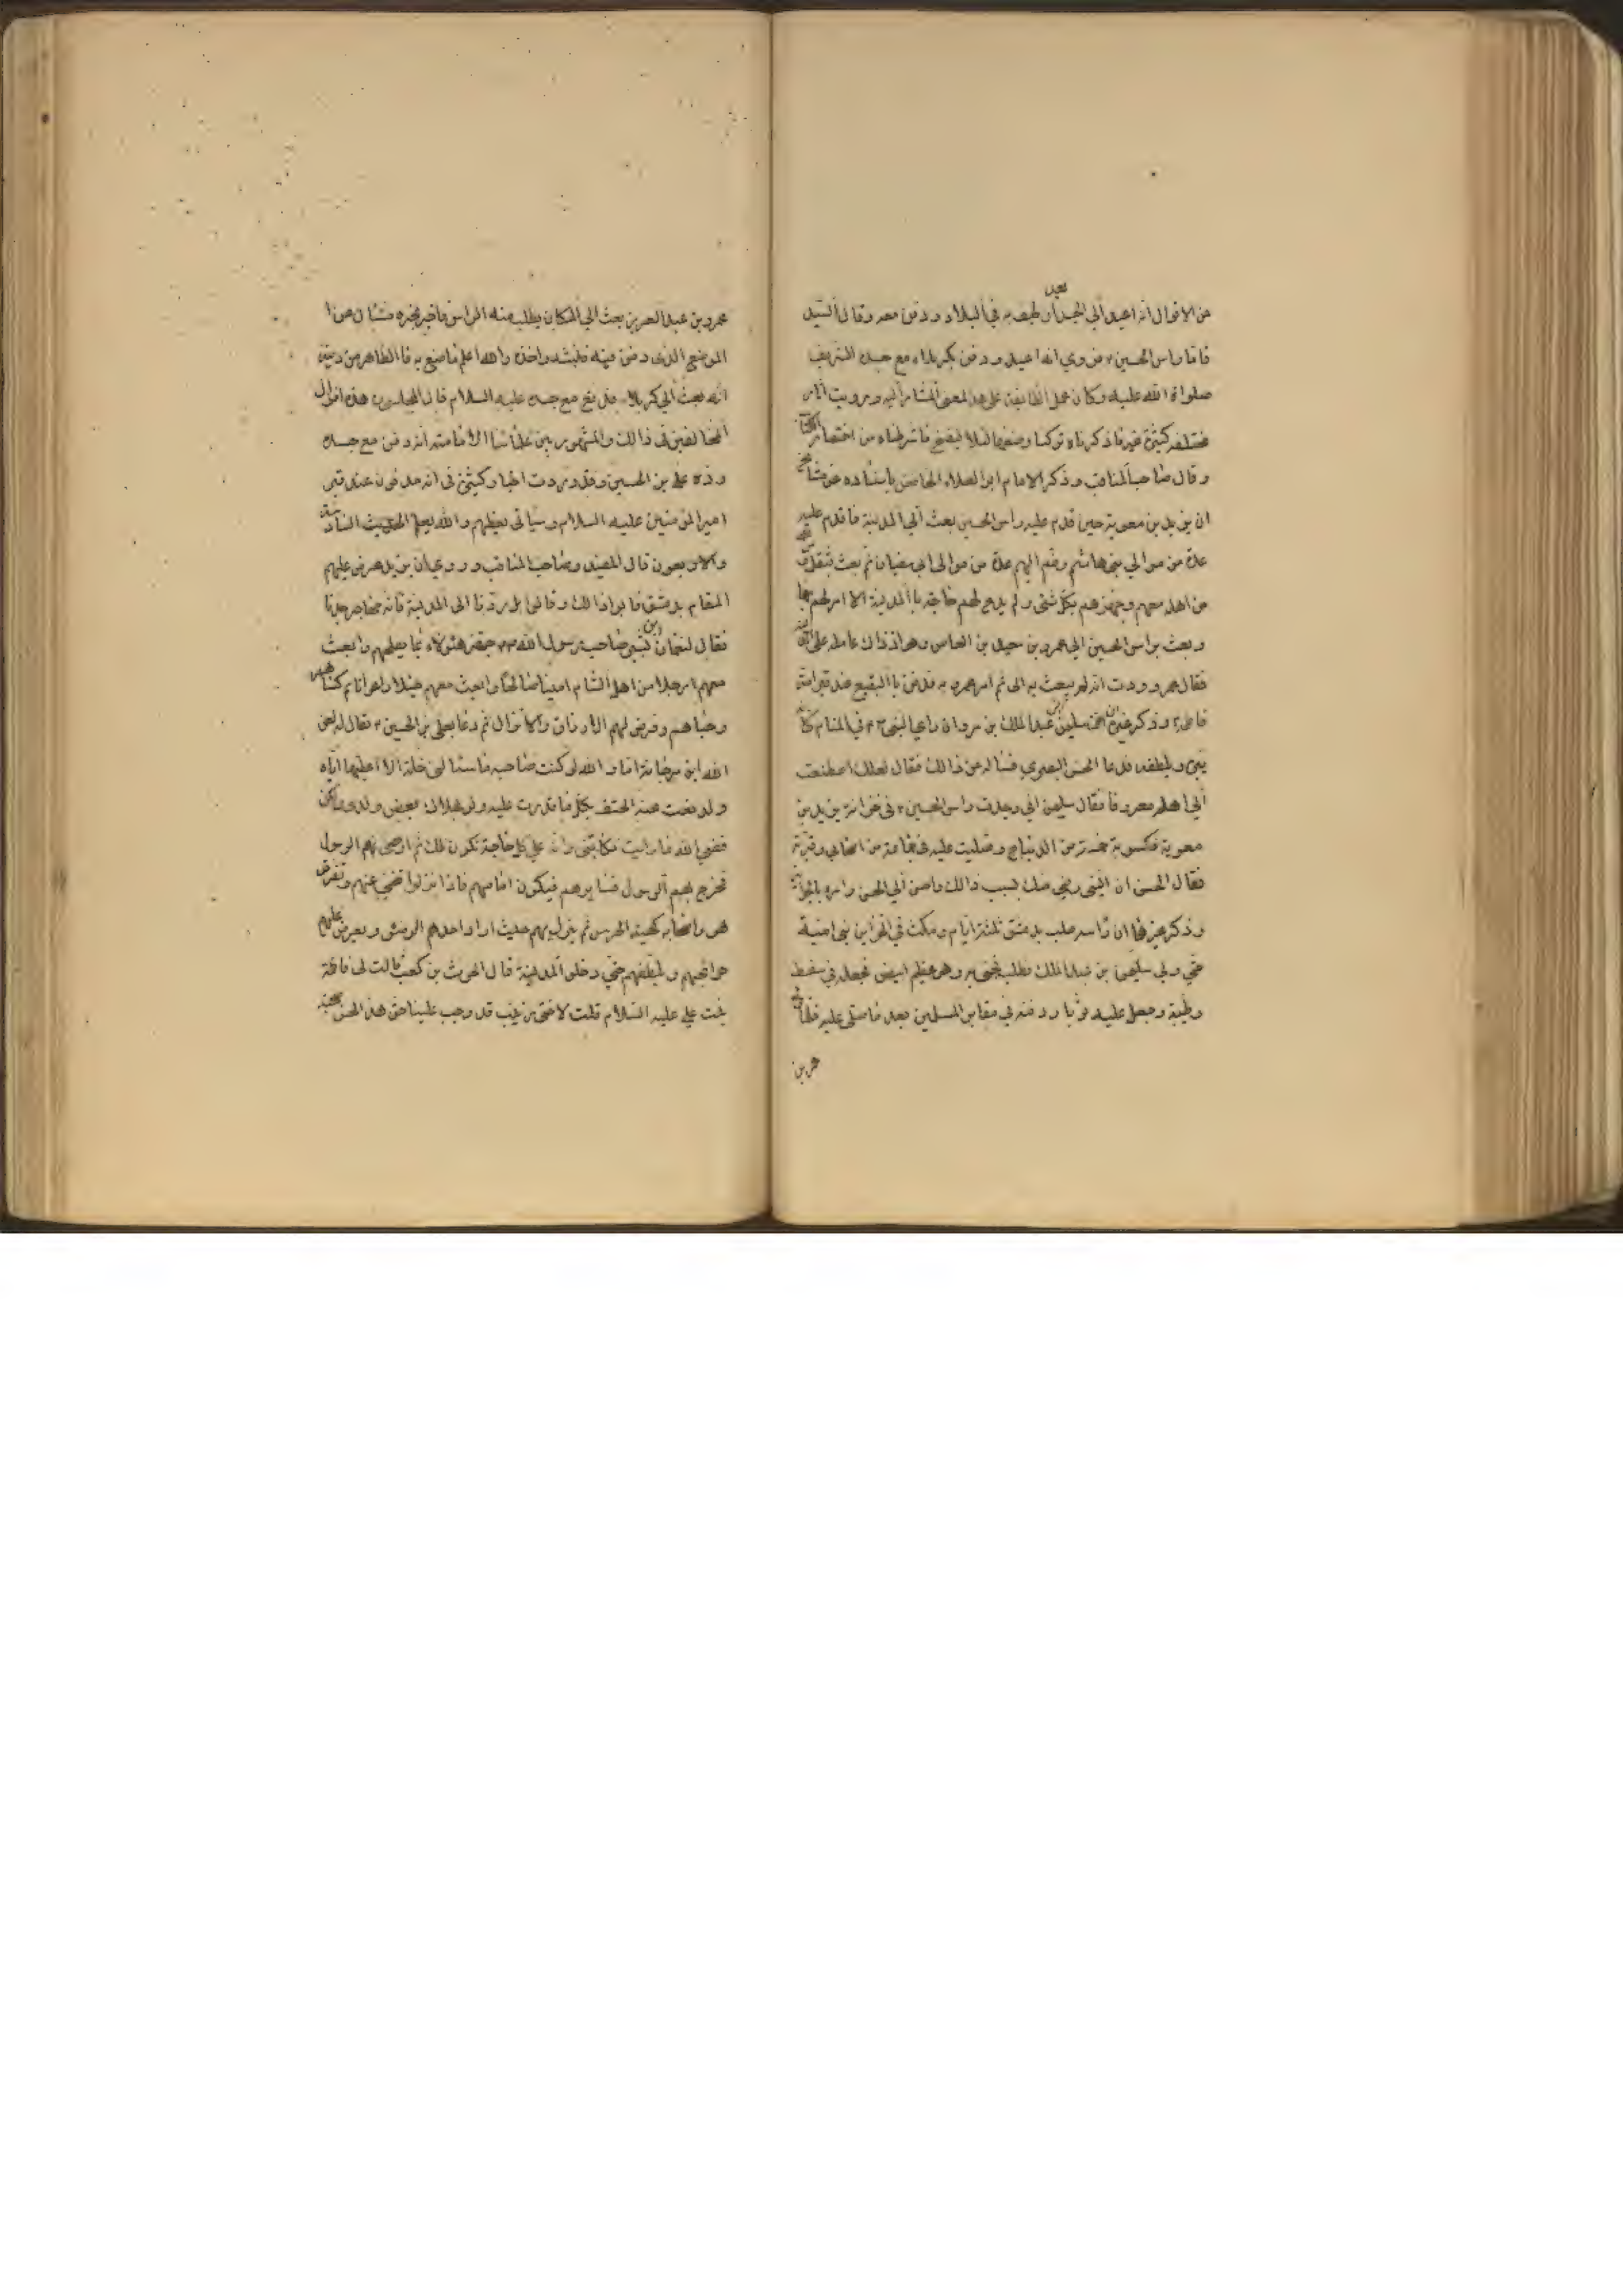 بعد
من الاقوال انه اعيد الى الجسد ان طيف به في البلاد ودفن معه وقال السيد
فاما راس الحسين ٤ فروي انه اعيد ودفن بكربلاء مع جسده الشريف
صلواة الله عليه وكان عمل الطايفة على هذا المعنى المشار اليه ورويت اثار
مختلفة كثيرة غير ما ذكرناه تركنا وضعها لئلا ينفسخ ما شرطناه من اختصار الكتاب
وقال صاحب المناقب وذكر الامام ابو العلاء الحافظ باسناده عن مشايخه
ان يزيد بن معوية حين قدم عليه راس الحسين بعث الى المدينة فاقدم عليه
عدة من موالي بني هاشم وضم اليهم عدة من موالي ابي سفيان ثم بعث بثقل الحسين ومن بقي
من اهله معهم وجهزهم بكل شئ ولم يدع لهم حاجة بالمدينة الا امر لهم بها
وبعث براس الحسين الى عمرو بن سعيد بن العاص وهو اذ ذاك عامله على المدينة
فقال عمرو وددت انه لم يبعث به الى ثم امر عمرو به فدفن بالبقيع عند قبر امه
فاطمة وذكر غيره ان سليمن بن عبد الملك بن مروان راي النبي ص في المنام كانه
يبره ويلطفه فدعا الحسن البصري فساله عن ذالك فقال لعلك اصطنعت
الى اهله معروفا فقال سليمن اني وجدت راس الحسين ٤ في خزانة يزيد بن
معوية فكسوته خمسة من الديباج وصليت عليه في جماعة من اصحابي وقبرته
فقال الحسن ان النبي رضي منك بسبب ذالك واحسن الى الحسن وامر بالجوائز
وذكر غيرهما ان راسه صلب بدمشق ثلثة ايام ومكث في خزاين بني امية
حتي ولي سليمن بن عبد الملك فطلب فجئ به وهو عظم ابيض فجعله في سفط
وطيبه وجعل عليه ثوبا ودفنه في مقابر المسلمين بعد ما صلى عليه فلما ولي
عمر بن
عمرو بن عبد العزيز بعث الى المكان يطلب منه الراس فاخبر بخبره فسال عن ا
الموضع الذى دفن فيه فنبشه واخذه والله اعلم ما صنع به فالظاهر من دينه
انه بعث الى كربلاء فدفن مع جسده عليه السلام قال المجلسي هذه اقوال
المخالفين في ذالك والمشهور بين علمائنا الامامية انه دفن مع جسده
رده علي بن الحسين وقد وردت اخبار كثيرة في انه مدفون عند قبر
امير المؤمنين عليه السلام وسياتى بعظهم والله يعلم الحديث السادس
والاربعون قال المفيد وصاحب المناقب وروى ان يزيد عرض عليهم
المقام بدمشق فابوا ذالك وقالوا بل ردنا الى المدينة فانه مهاجر جدنا
فقال لنعمان ابن بشير صاحب رسول الله ص جهز هئولاء بما يصلحهم وابعث
معهم رجلا من اهل الشام امينا صالحا وابعث معهم خيلا واعوانا ثم كساهم
وحباهم وفرض لهم الارزاق والانزال ثم دعا بعلي بن الحسين ٤ فقال له لعن
الله ابن مرجانة اما والله لو كنت صاحبه ما سئالني خلة الا اعطيتها اياه
ولدفعت عنه الحتف بكل ما قدرت عليه ولو بهلاك بعض ولدي ولكن
قضي الله ما رايت فكاتبني وانه علي كل حاجة تكون لك ثم اوصى بهم الرسول
فخرج بهم الرسول فسايرهم فيكون امامهم فاذا نزلوا تنحى عنهم وتفرق
هو واصحابه كهيئة الحرس ثم ينزل بهم حيث اراد احدهم الوضوء ويعرض عليهم
حوائجهم ويلطفهم حتي دخلوا المدينة قال الحرث بن كعب قالت لي فاطمة
بنت علي عليه السلام قلت لاختي زينب قد وجب علينا حق هذا لحسن صحبته